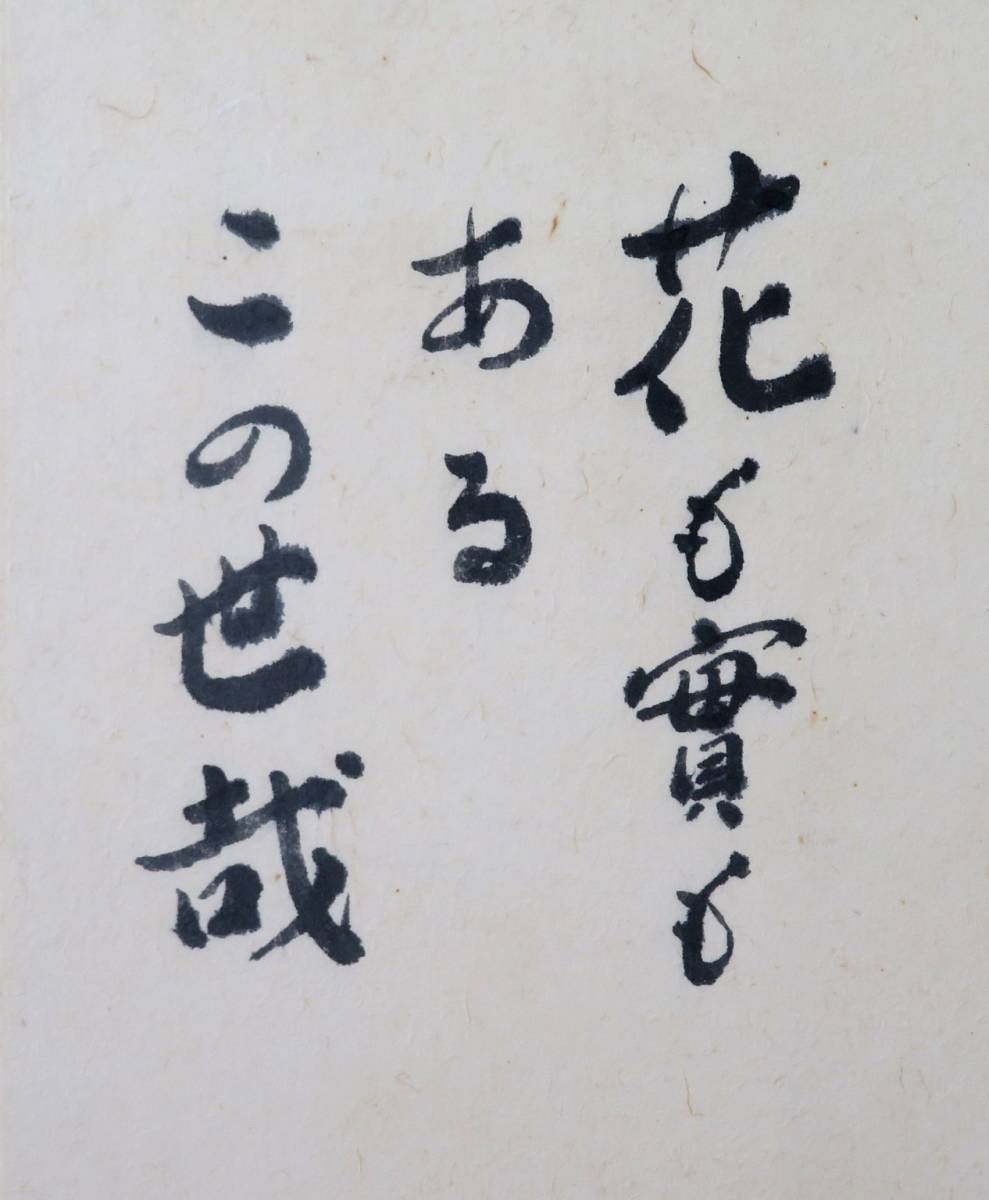 花も實も
ある
この世哉